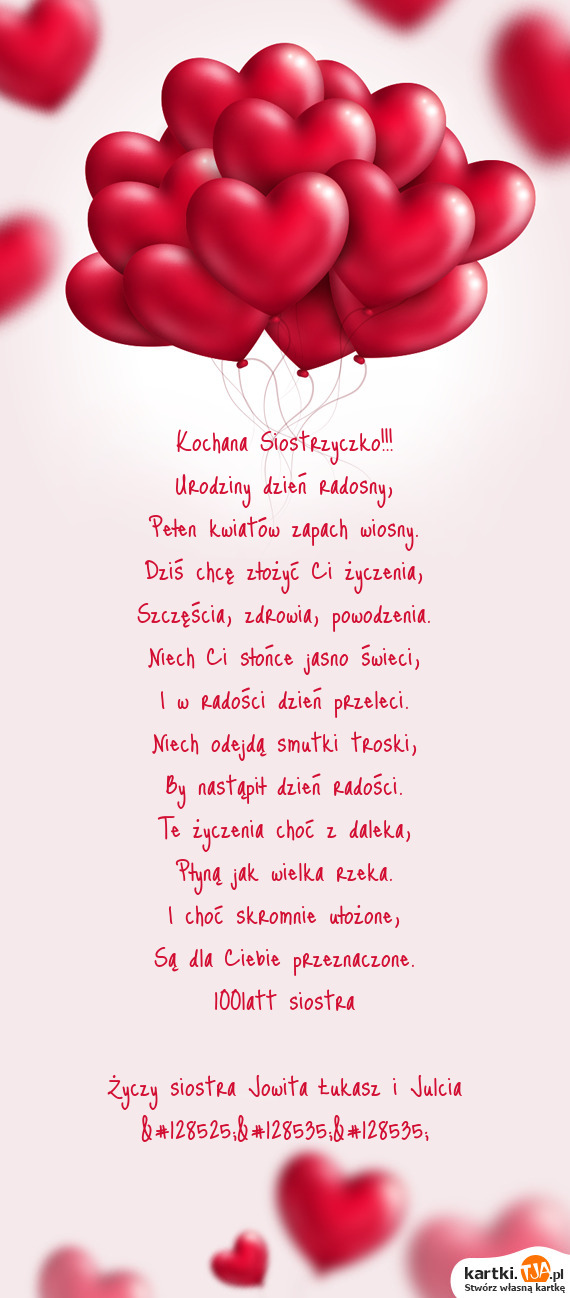 Kochana Siostrzyczko!!!
Urodziny dzień radosny,
Pełen kwiatów zapach wiosny.
Dziś chcę złożyć Ci życzenia,
Szczęścia, zdrowia, powodzenia.
Niech Ci słońce jasno świeci,
I w radości dzień przeleci.
Niech odejdą smutki troski,
By nastąpił dzień radości.
Te życzenia choć z daleka,
Płyną jak wielka rzeka.
I choć skromnie ułożone,
Są dla Ciebie przeznaczone.
100latt siostra
Życzy siostra Jowita Łukasz i Julcia
&#128525;&#128535;&#128535;
kartki.TJA.pl
Stwórz własną kartkę